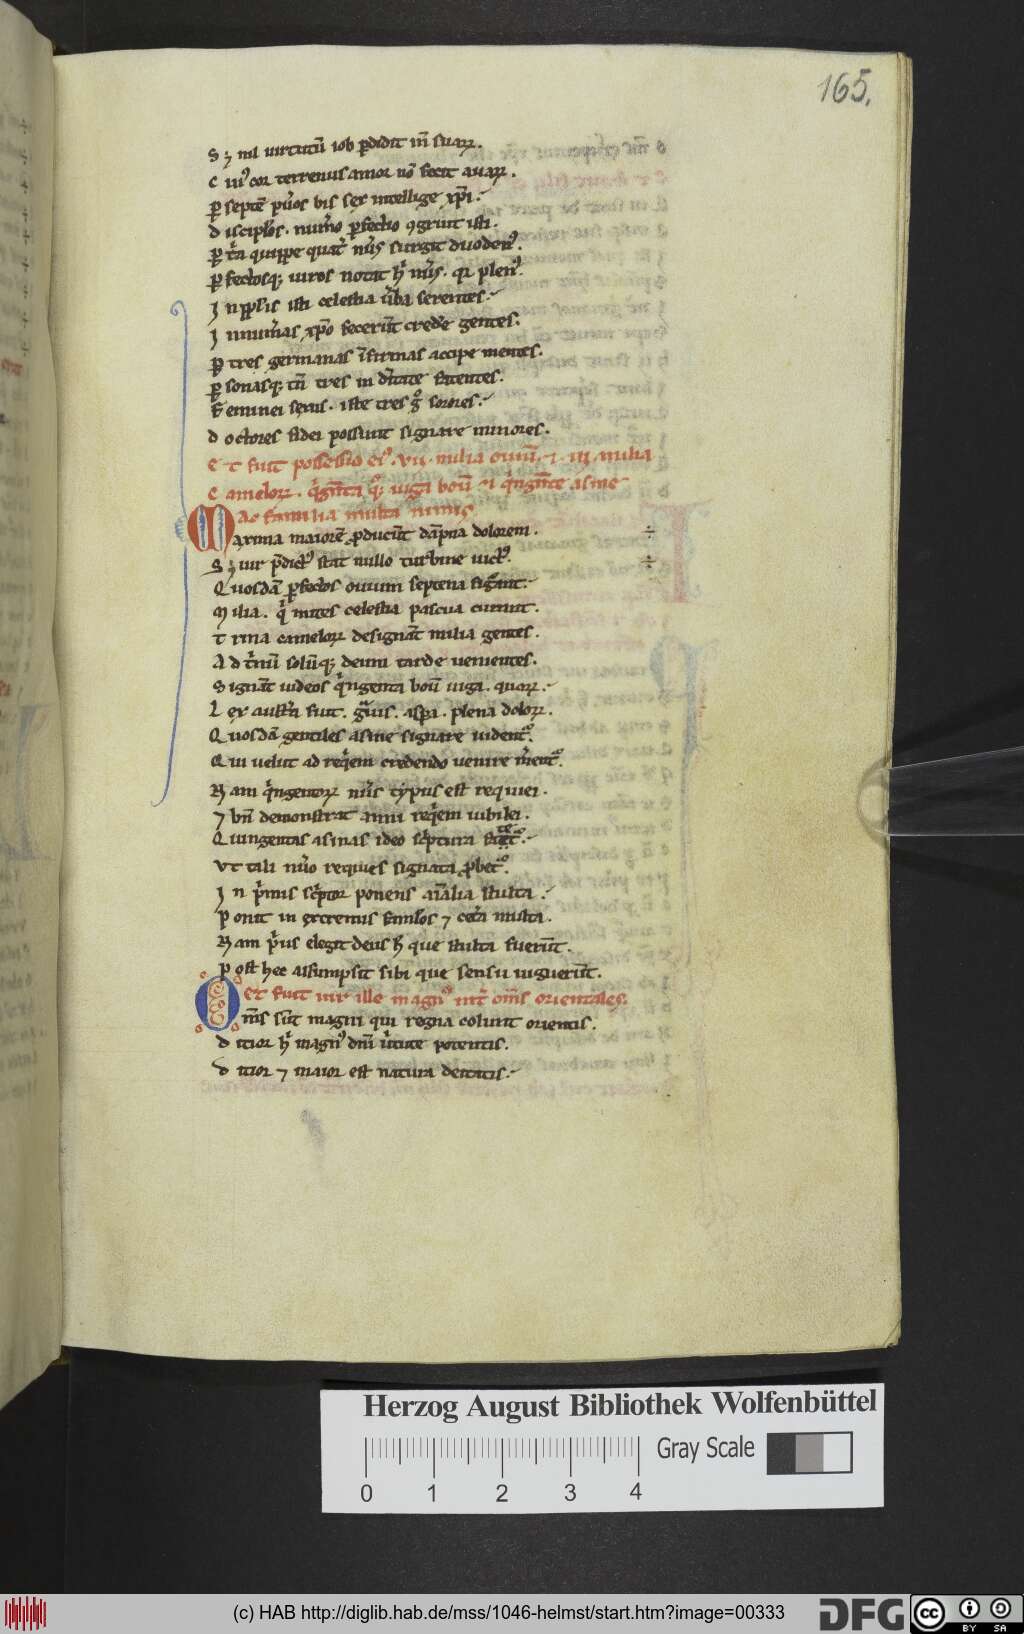 165.
S ⁊ nil uirtutū iob ꝑdidit īn̄ suaꝝ.
C uiꝰ cor terrenus amor nō fecit auaꝝ.
ꝑ septē pūos bis sex intellige xp̄i.
D iscipl̄os. num̄o ꝑfecto ꝯgruit isti.
ꝑ t̄na quippe quat̄ nūs surgit duodenꝰ.
ꝑ fectosqꝫ uiros notat h̄ nūs. qr plenꝰ.
I n pp̄lis isti celestia ūba serentes.
I nnum̄as xp̄o fecerūt crede gentes.
ꝑ tres germanas īfirmas accipe mentes.
ꝑ sonasqꝫ tn̄ tres in dn̄tate fatentes.
F eminei sexus. iste tres gͦ sorores.
D octores fidei possunt signare minores.
E t fuit possessio eiꝰ. vii. milia ouiū. ⁊. iii. milia
C ameloꝝ. qͥgn̄ta qͦꝫ iuga boū ⁊ qͥngn̄te asine
Ac familia multa nimis.
Maxima maiorē ꝓducūt dāpna dolorem. ÷
S ꝫ uir p̄dictꝰ stat nullo turbine uictꝰ. ÷
Q uosdā ꝑfectos ouium septena figānt.
M ilia. qͥ mites celestia pascua curant.
T rina cameloꝝ designāt milia gentes.
A d t̄nū solūqꝫ deum tarde uenientes.
S ignāt iudeos qͥngenta boū iuga. quoꝝ.
L ex aust̄a fuit. gͣuis. asp̄a. plena doloꝝ.
Q uosdā gentiles asine signare uident᷒.
Q ui uelut ad reqͥem credendo uenire m̄ent᷒.
N am qͥngentoꝝ nūs typus est requiei.
⁊ bn̄ demonstrat anni reqͥem iubilei.
Q uingentas asinas ideo sc̄ptura fatet᷒.
V t tali nūo requies signata ꝓbet᷒.
I n p̄mis sc̄ptor ponens aīalia stulta.
P onit in extremis faml̄os ⁊ cet̄a multa.
N am p̄us elegit deus h̄ que stulta fuerūt.
P ost hec assumpsit sibi que sensu uiguerūt.
Et fuit uir ille magnꝰ int̄ om̄s orientales.
Om̄s sūt magni qui regna colunt orientis.
D itior h̄ magnꝰ dn̄i ūtute potentis.
D itior ⁊ maior est natura deitatis.
Herzog August Bibliothek Wolfenbüttel
Gray Scale
0 1 2 3 4
(c) HAB http://diglib.hab.de/mss/1046-helmst/start.htm?image=00333
DFG
cc BY SA